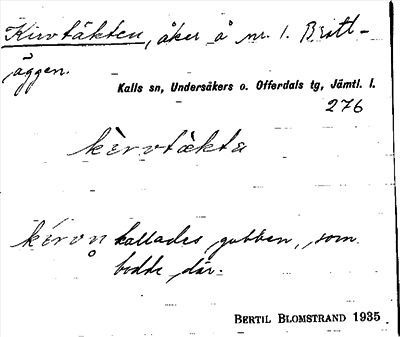 Kirvtäkten, åker å nr. 1. Bratt-
äggen.
Kalls sn, Undersåkers o. Offerdals tg, Jämtl. l.
276
kèrvtäkta
kérvn̥ kallades gubben, som
bodde där.
BERTIL BLOMSTRAND 1935